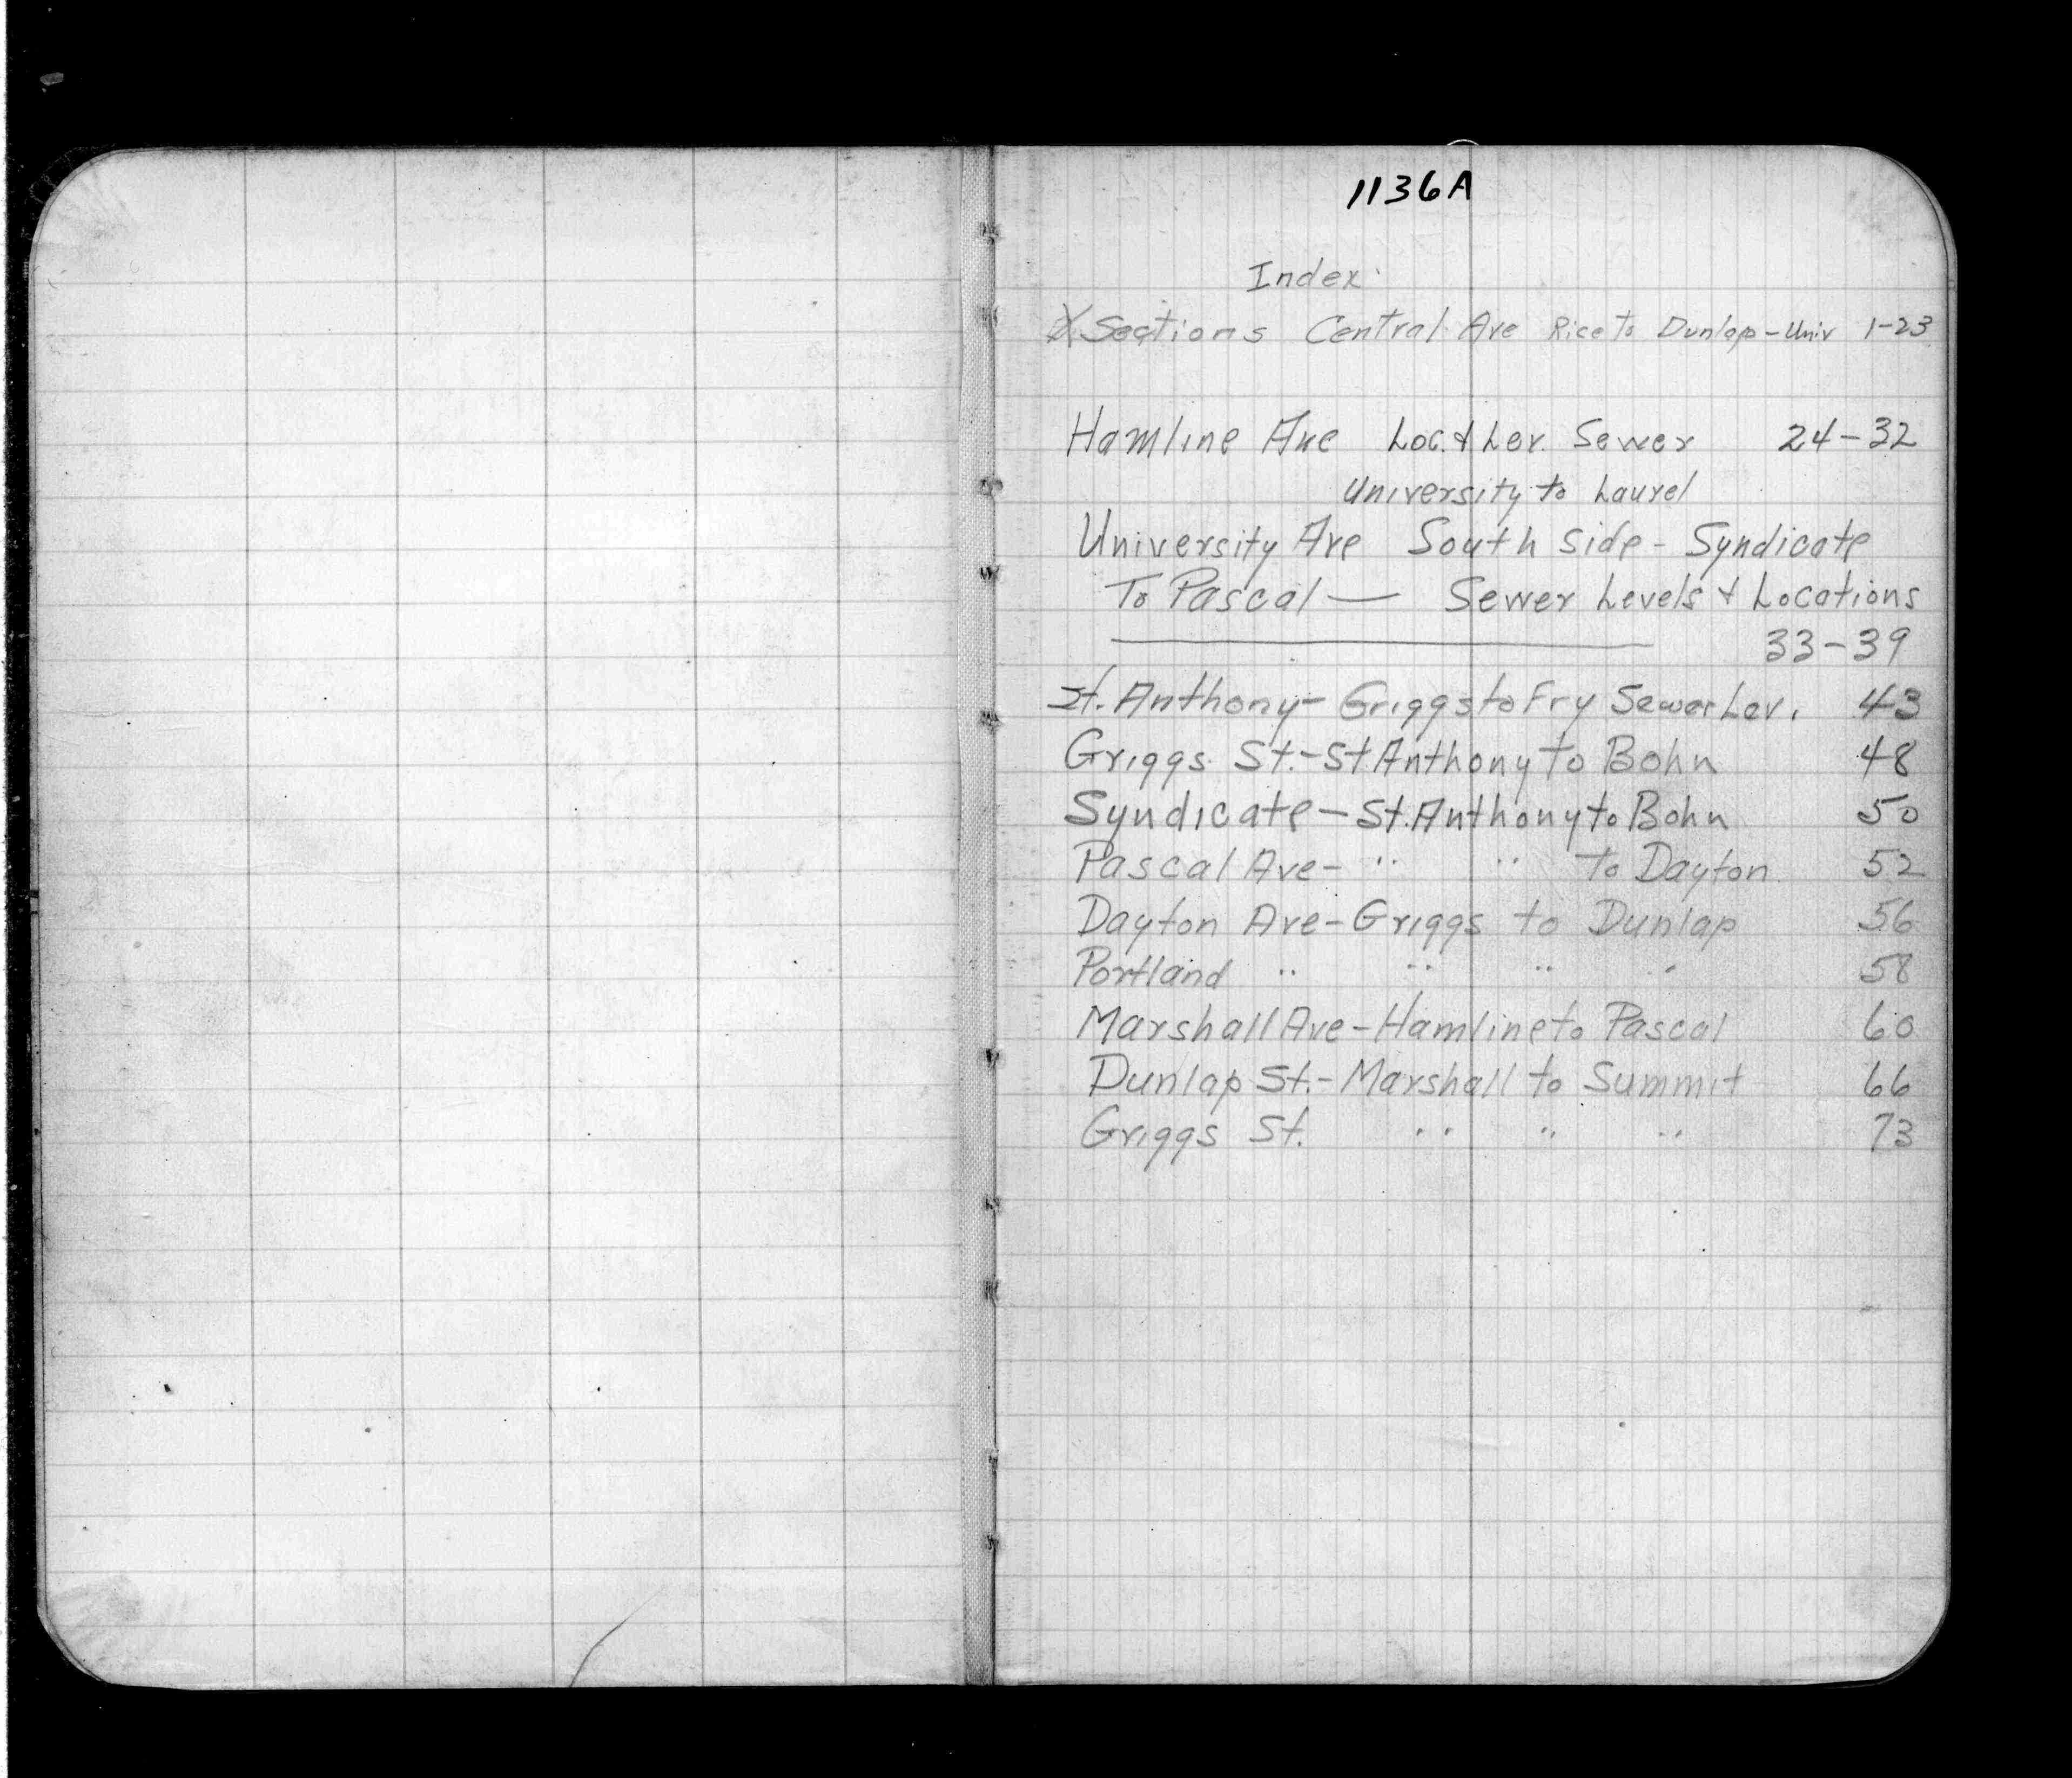 1136A
Index
X Sections Central Ave Rice to Dunlap - Univ 1-23
Hamline Ave Loc. & Lev. Sewer 24-32
University to Laurel
University Ave South Side - Syndicate
To Pascal — Sewer Levels & Locations
33-39
St. Anthony - Griggs to Fry Sewer Lev. 43
Griggs St. - St Anthony to Bohn 48
Syndicate - St. Anthony to Bohn 50
Pascal Ave - " " To Dayton 52
Dayton Ave - Griggs to Dunlap 56
Portland " " " " 58
Marshall Ave - Hamline to Pascal 60
Dunlap St. - Marshall to Summit 66
Griggs St. " " " 73